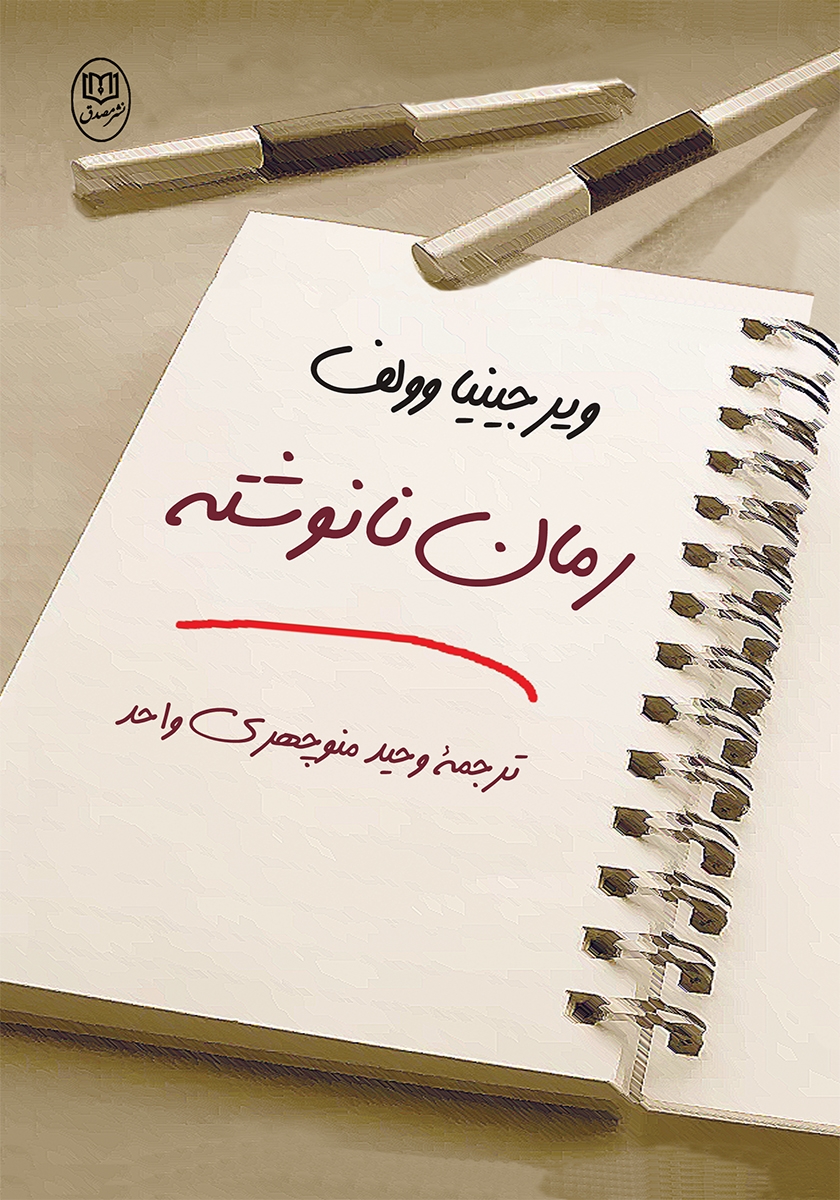 نشر مصدق
ویرجینیا وولف
رمان نانوشته
ترجمهٔ وحید منوچهری واحد